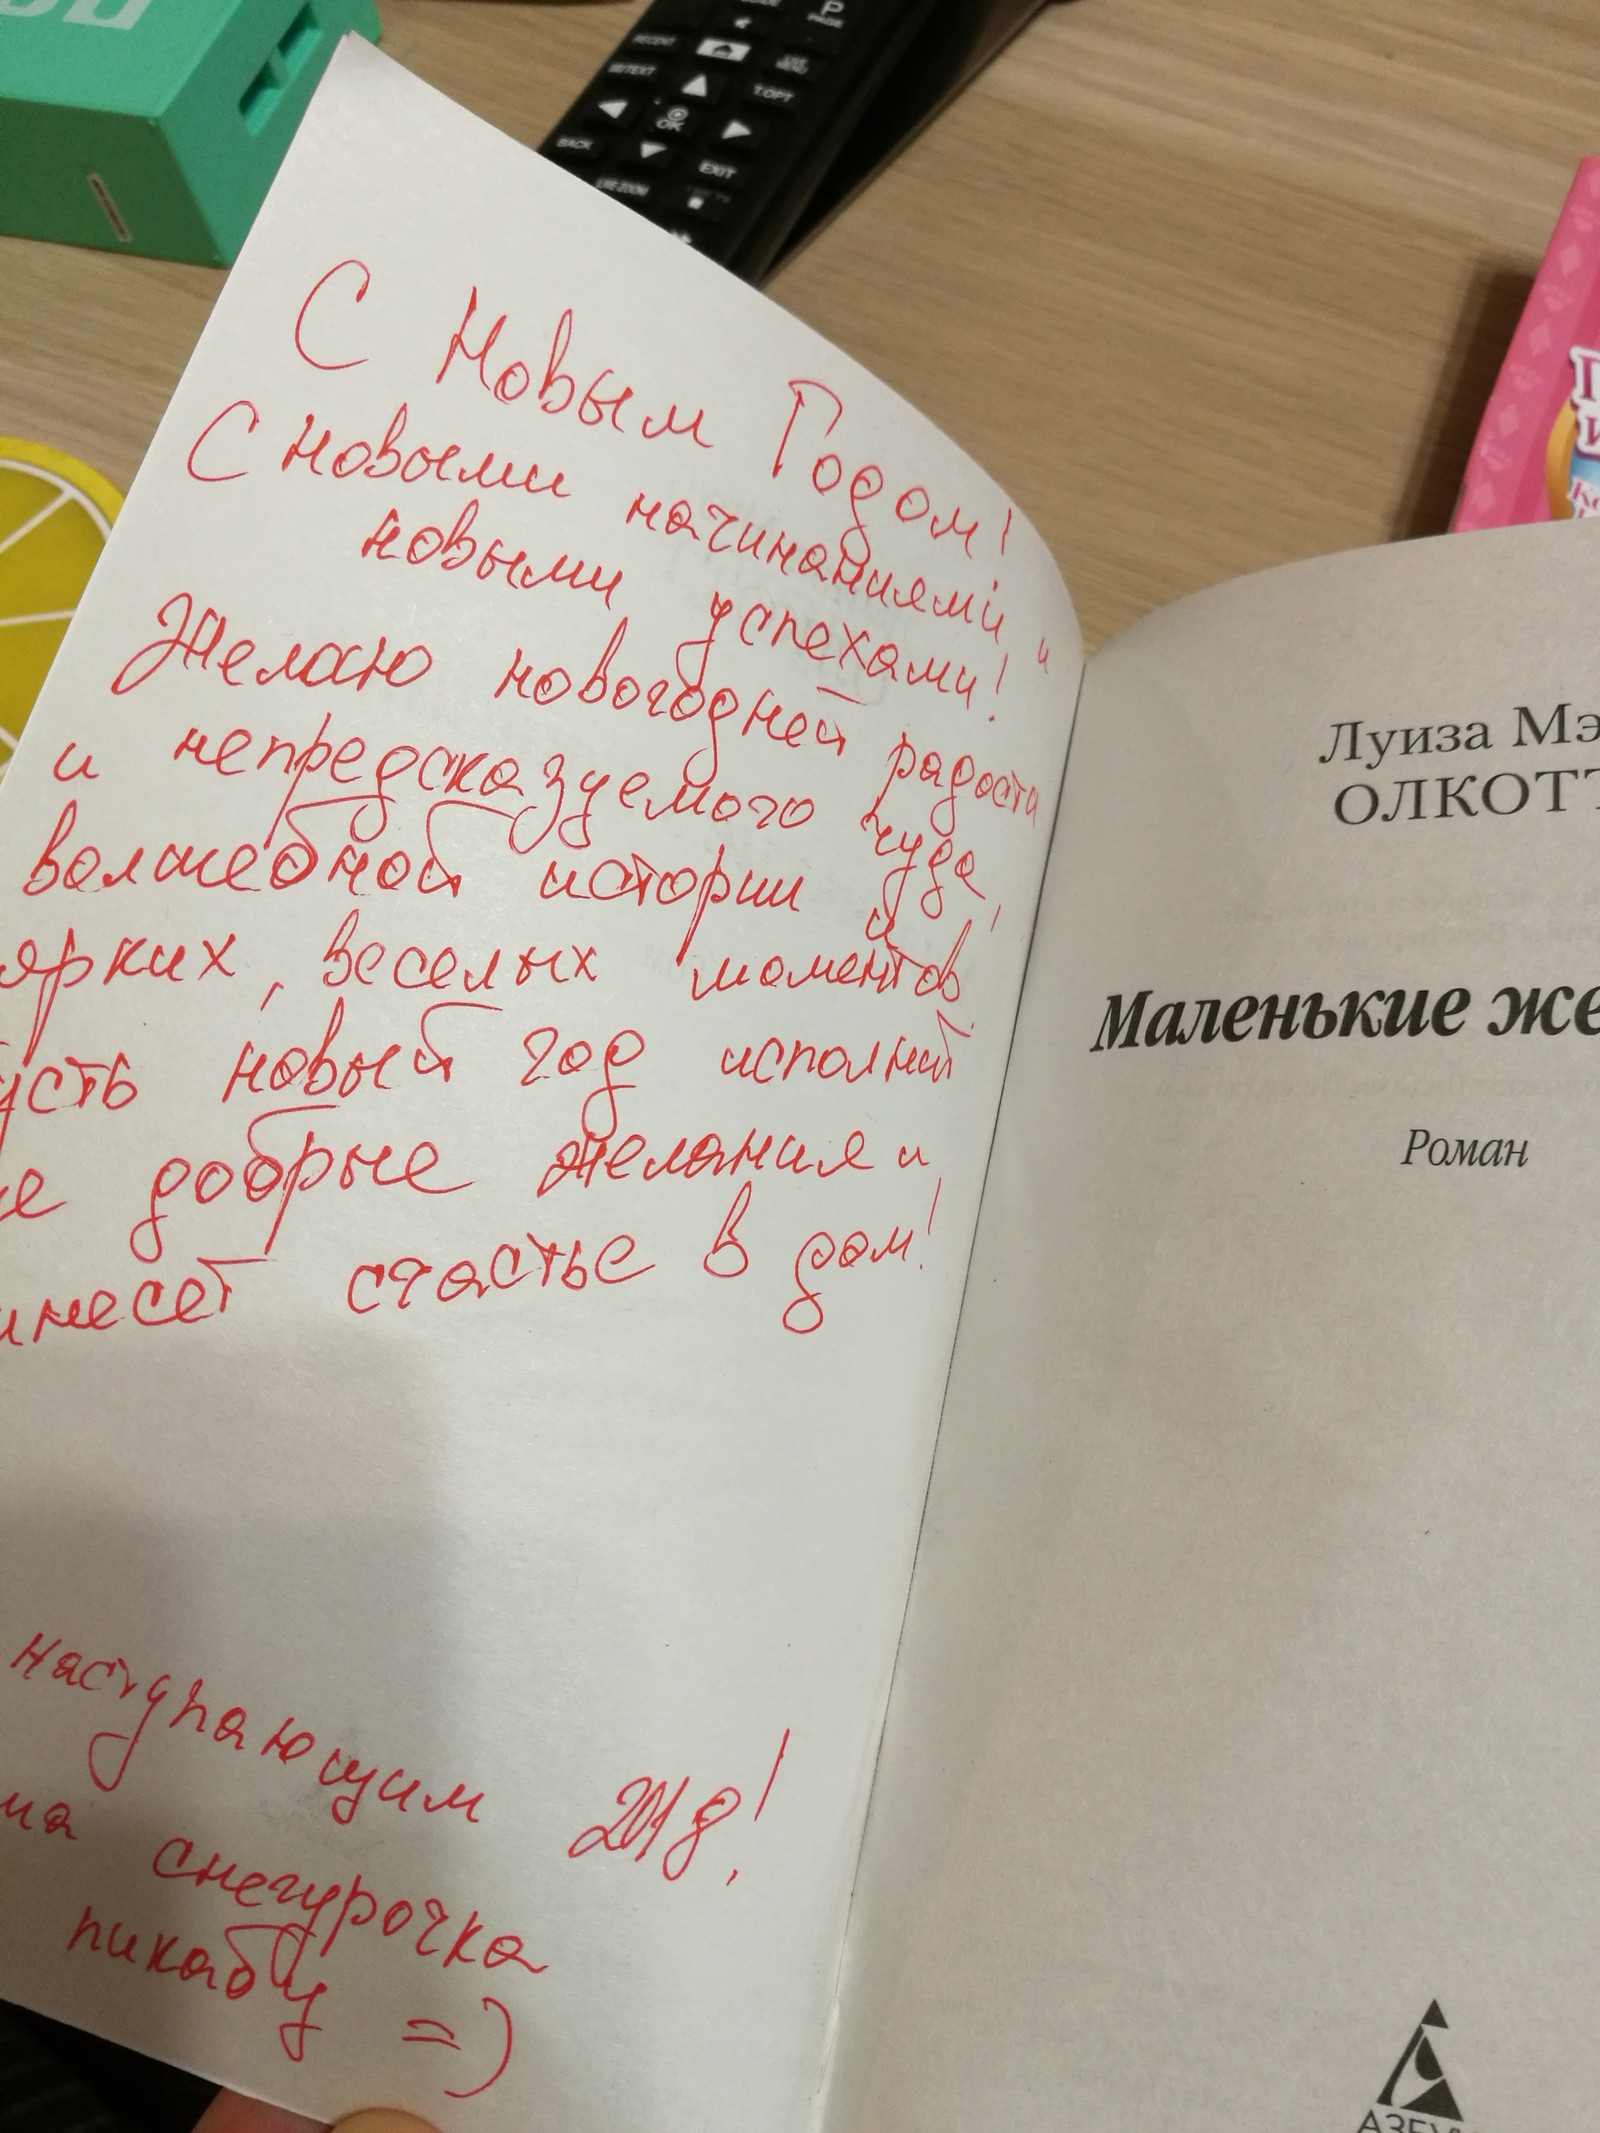 GUIDE
P
PAGE
RECENT
LIVE
MENU
T.OPT
OK
BACK
EXIT
LIVE ZOOM
С Новым Годом!
С новыми начинаниями и
новыми успехами!
Желаю новогодней радости
и непредсказуемого чуда,
волшебной истории и
ярких, веселых моментов
усть новый год исполнит
е добрые желания и
инесет счастье в дом!
наступающим 2018!
ма снегурочка
пикабу =)
Луиза Мэ
ОЛКОТТ
Маленькие же
Роман
АЗБУ